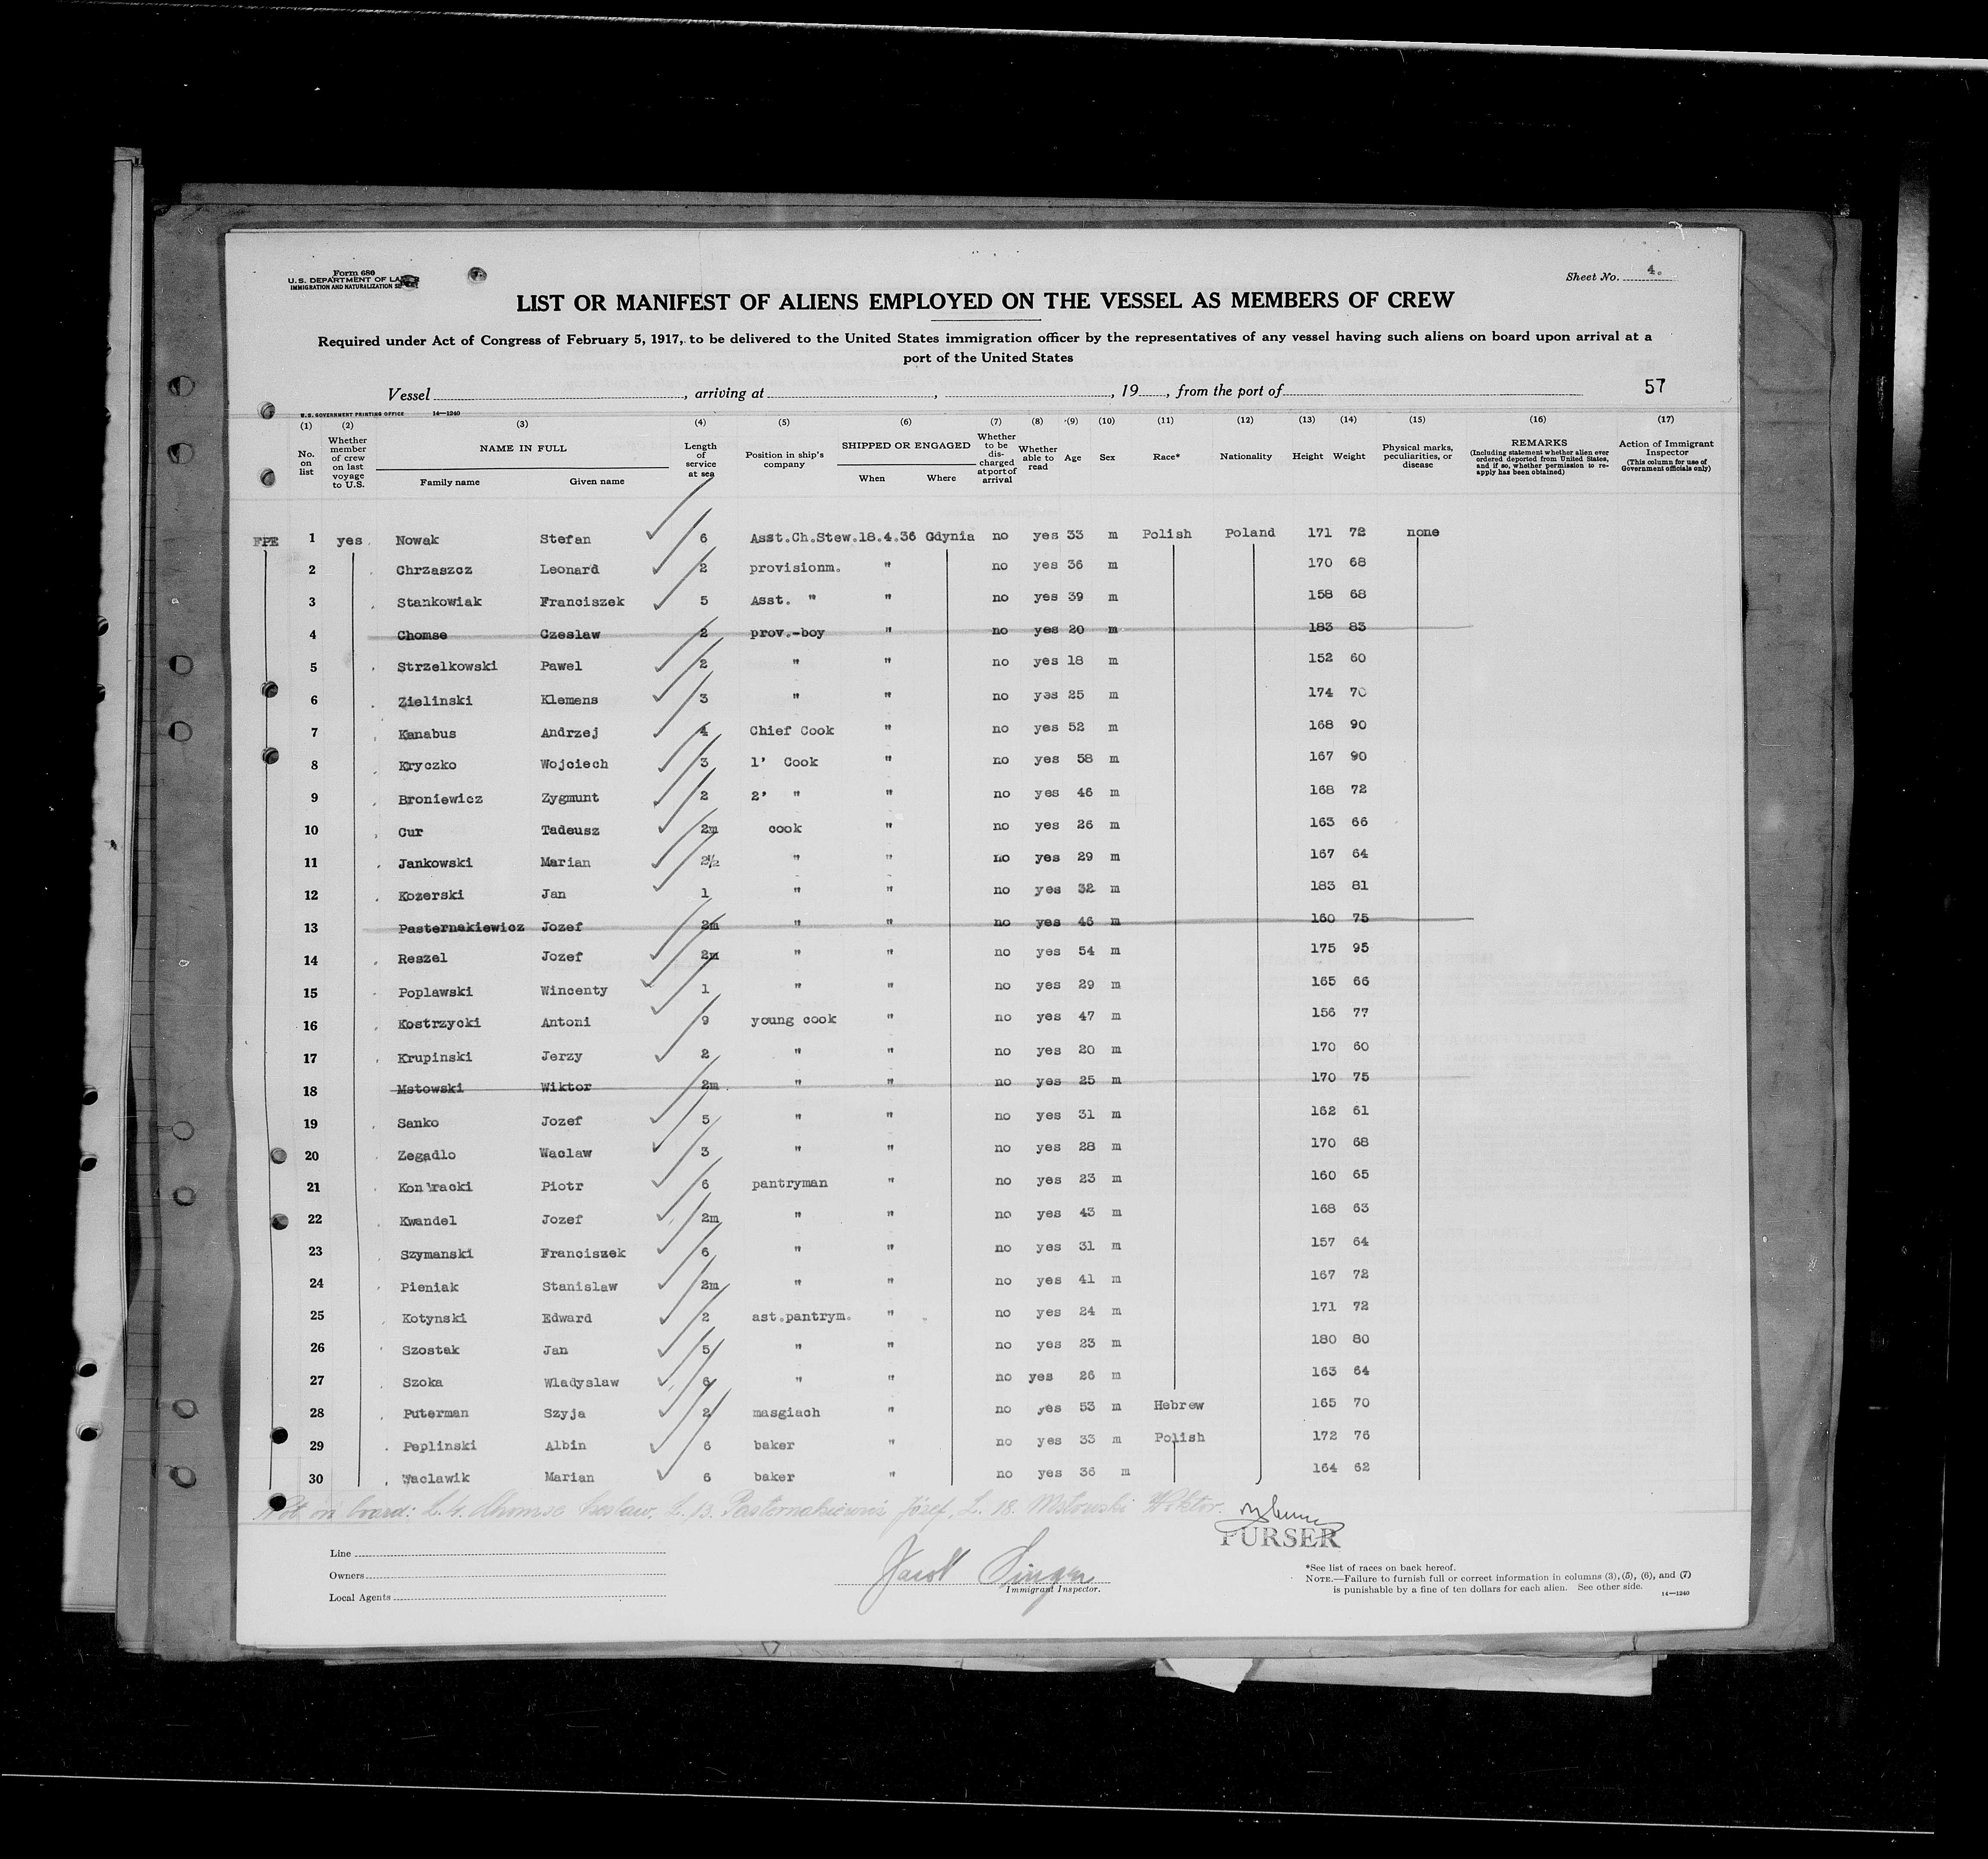 Form 680
U. S. DEPARTMENT OF LA
IMMIGRATION AND NATURALIZATION
Sheet No. 4.
LIST OR MANIFEST OF ALIENS EMPLOYED ON THE VESSEL AS MEMBERS OF CREW
Required under Act of Congress of February 5, 1917, to be delivered to the United States immigration officer by the representatives of any vessel having such aliens on board upon arrival at a
port of the United States
Vessel , arriving at , , 19 , from the port of 57
U. S. GOVERNMENT PRINTING OFFICE 14—1240
(1) No. on list
(2) Whether member of crew on last voyage to U.S.
(3) NAME IN FULL Family name Given name
(4) Length of service at sea
(5) Position in ship's company
(6) SHIPPED OR ENGAGED When Where
(7) Whether to be discharged at port of arrival
(8) Whether able to read
(9) Age
(10) Sex
(11) Race*
(12) Nationality
(13) Height
(14) Weight
(15) Physical marks, peculiarities, or disease
(16) REMARKS (Including statement whether alien ever ordered deported from United States, and if so, whether permission to re-apply has been obtained)
(17) Action of Immigrant Inspector (This column for use of Government officials only)
FPE 1 yes Nowak Stefan 6 Asst.Ch.Stew. 18.4.36 Gdynia no yes 33 m Polish Poland 171 72 none
2 Chrzaszcz Leonard 2 provisionm. " no yes 36 m 170 68
3 Stankowiak Franciszek 5 Asst. " " no yes 39 m 158 68
4 Chomse Czeslaw 2 prov.-boy " no yes 20 m 183 83
5 Strzelkowski Pawel 2 " " no yes 18 m 152 60
6 Zielinski Klemens 3 " " no yes 25 m 174 70
7 Kanabus Andrzej 4 Chief Cook " no yes 52 m 168 90
8 Kryczko Wojciech 3 1' Cook " no yes 58 m 167 90
9 Broniewicz Zygmunt 2 2' " " no yes 46 m 168 72
10 Cur Tadeusz 2m cook " no yes 26 m 163 66
11 Jankowski Marian 2½ " " no yes 29 m 167 64
12 Kozerski Jan 1 " " no yes 32 m 183 81
13 Pasternakiewicz Jozef 2m " " no yes 46 m 160 75
14 Reszel Jozef 2m " " no yes 54 m 175 95
15 Poplawski Wincenty 1 " " no yes 29 m 165 66
16 Kostrzycki Antoni 9 young cook " no yes 47 m 156 77
17 Krupinski Jerzy 2 " " no yes 20 m 170 60
18 Mstowski Wiktor 2m " " no yes 25 m 170 75
19 Sanko Jozef 5 " " no yes 31 m 162 61
20 Zegadlo Waclaw 3 " " no yes 28 m 170 68
21 Piotr 6 pantryman " no yes 23 m 160 65
22 Kwandel Jozef 2m " " no yes 43 m 168 63
23 Szymanski Franciszek 6 " " no yes 31 m 157 64
24 Pieniak Stanislaw 2m " " no yes 41 m 167 72
25 Kotynski Edward 2 ast.pantrym. " no yes 24 m 171 72
26 Szostak Jan 5 " " no yes 23 m 180 80
27 Szoka Wladyslaw 6 " " no yes 26 m 163 64
28 Puterman Szyja 2 masgiach " no yes 53 m Hebrew 165 70
29 Peplinski Albin 6 baker " no yes 33 m Polish 172 76
30 Waclawik Marian 6 baker " no yes 36 m 164 62
Not on board: L. 4. Chomse Czeslaw, L. 13. Pasternakiewicz Józef, L. 18. Mstowski Wiktor.
PURSER
Line
Owners
Local Agents
Jacob Singer
Immigrant Inspector.
*See list of races on back hereof.
NOTE.—Failure to furnish full or correct information in columns (3), (5), (6), and (7)
is punishable by a fine of ten dollars for each alien. See other side.
14—1240